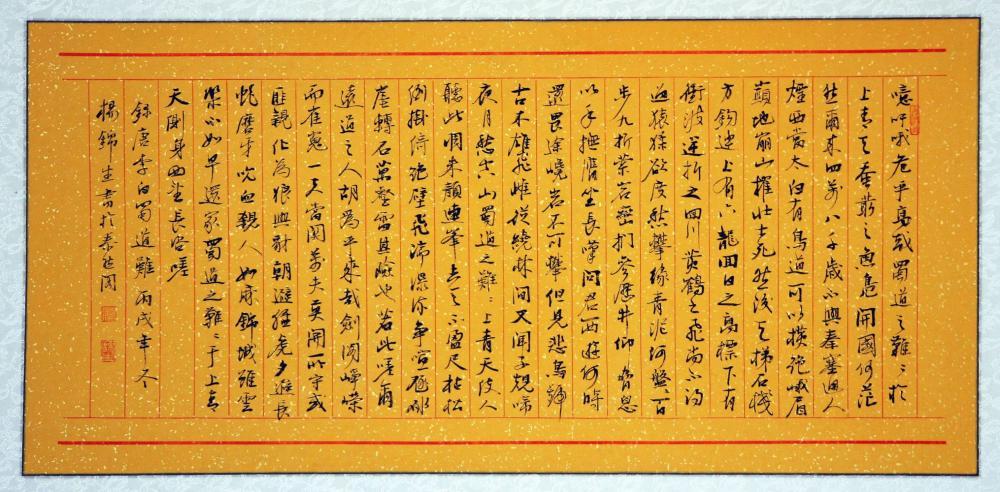 噫吁戲危乎高哉蜀道之難〻於
上青天蚕叢之魚鳧開國何茫
然爾來四萬八千歲不與秦塞通人
煙西當太白有鳥道可以橫絕峨眉
巔地崩山摧壯士死然後天梯石棧
方鈎連上有六龍回日之高標下有
衝波逆折之回川黃鶴之飛尚不得
過猿猱欲度愁攀緣青泥何盤〻百
步九折縈岩巒捫參歷井仰脅息
以手撫膺坐長嘆問君西遊何時
還畏途巉岩不可攀但見悲鳥號
古木雄飛雌從繞林間又聞子規啼
夜月愁空山蜀道之難〻上青天使人
聽此凋朱顏連峯去天不盈尺枯松
倒掛倚絕壁飛湍瀑流爭喧豗砯
崖轉石萬壑雷其險也若此嗟爾
遠道之人胡為乎來哉劍閣崢嶸
而崔嵬一夫當関萬夫莫開所守或
匪親化為狼與豺朝避猛虎夕避長
蛇磨牙吮血殺人如麻錦城雖雲
樂不如早還家蜀道之難〻于上青
天側身西望長咨嗟
錄唐李白蜀道難 丙戌年冬
楊錦生書於泰